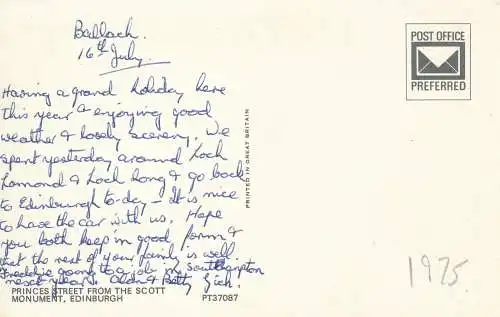 Balloch.
16th July.
Having a grand holiday here
this year & enjoying good
weather & lovely scenery. We
spent yesterday around Loch
Lomond & Loch Long & go back
to Edinburgh to-day - It is nice
to have the car with us. Hope
you both keep in good form &
that the rest of your family is well.
Freddie going to a job in Southampton
next year. & Betty
PRINCES STREET FROM THE SCOTT
MONUMENT, EDINBURGH
PT37087
PRINTED IN GREAT BRITAIN
POST OFFICE
PREFERRED
1975.